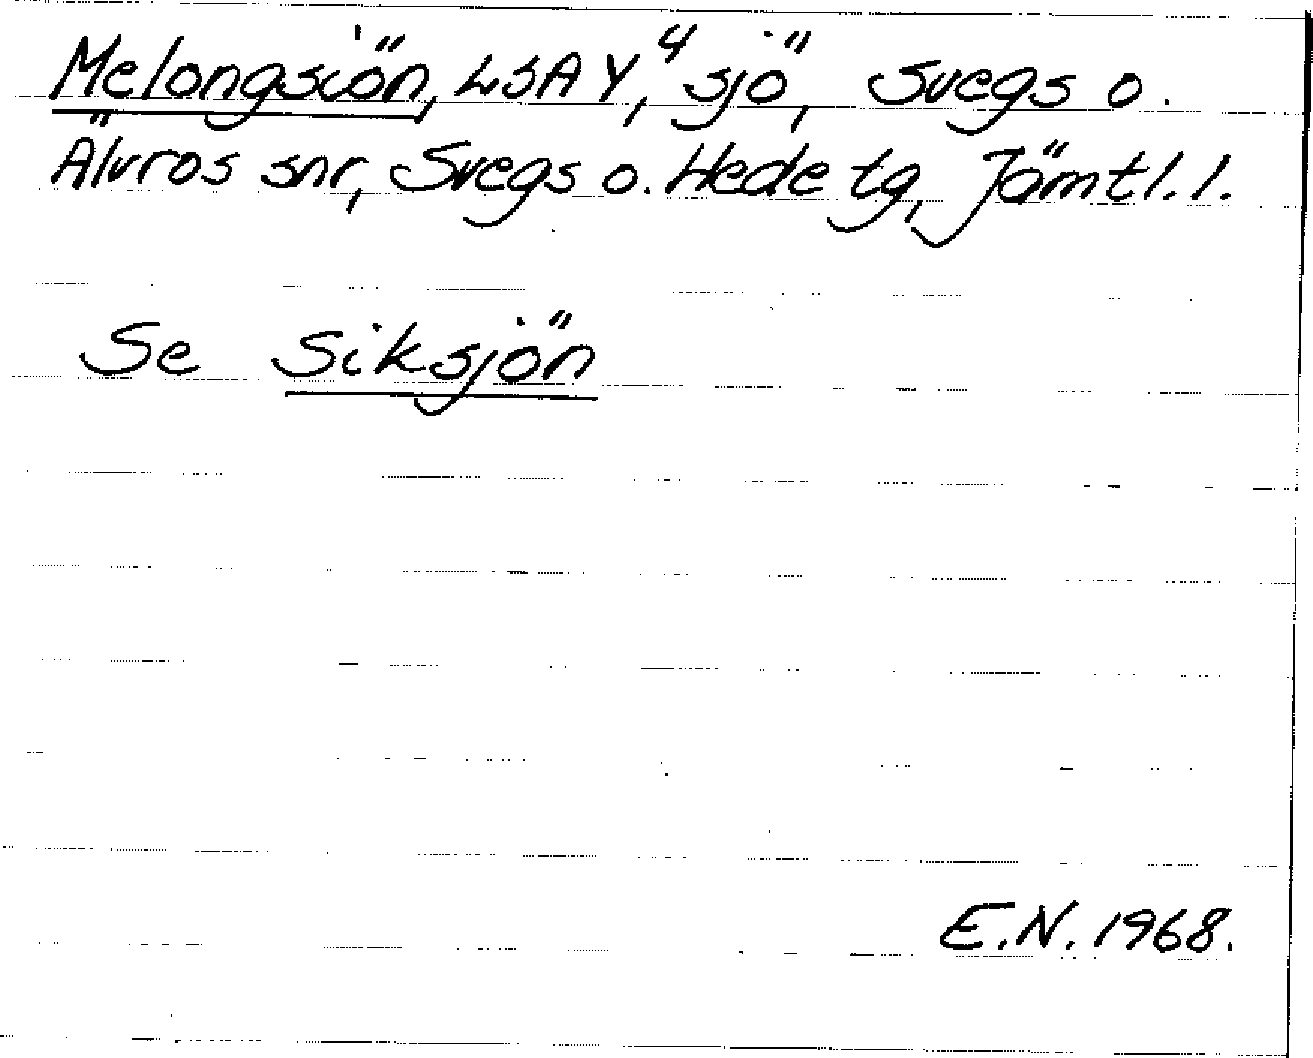 Melongsiön, LSA Y⁴, sjö, Svegs o.
Älvros snr, Svegs o. Hede tg, Jämtl. l.
Se Siksjön
E.N. 1968.